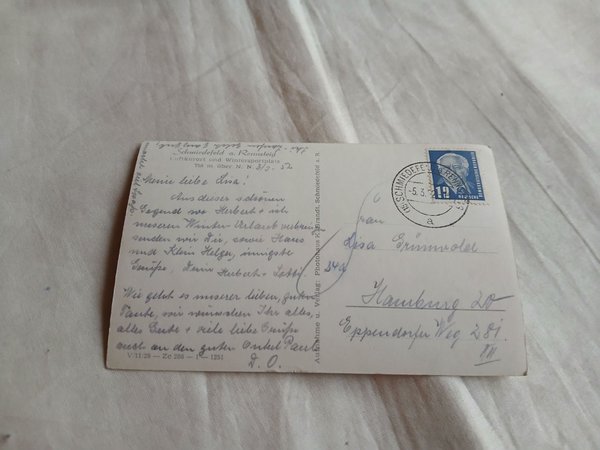 Schmiedefeld a. Rennsteig
Luftkurort und Wintersportplatz
m über N. N. 5/3. 52
Meine liebe Lisa!
Aus dieser schönen
Gegend wo Herbert + ich
unseren Winter-Urlaub verbringen
senden wir Dir, sowie Hans
und Klein Helger, innigste
Grüße, Deine Herbert + Lotti.
Wie geht es unserer lieben, guten
Tante, wir wünschen Ihr alles,
alles Gute + viele liebe Grüße
auch an den guten Onkel Paul
D. O.
V/11/28 — Ze 288 — 1251
Aufnahme u. Verlag: Photohaus K. Brandt, Schmiedefeld a. R.
SCHMIEDEFELD
-5.3.52
a
12
Frau
Lisa Grünwold
24a
Hamburg 20
Eppendorfer Weg 281
III